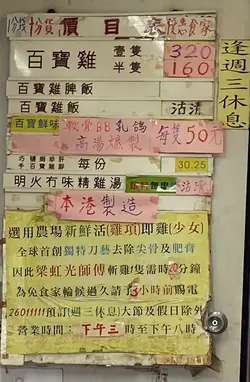 價目表
逢週三休息
百寶雞 壹隻 320
半隻 160
百寶雞脾飯
百寶雞飯 沽清
百寶鮮味 軟骨BB乳鴿 每隻50元
高湯燻製
每份 30.25
明火冇味精雞湯 沽清
本港製造
選用農場新鮮活(雞項)即雞(少女)
全球首創獨特刀藝去除尖骨及肥膏
因此梁虹光師傅斬雞1隻需時20分鐘
為免食家輪候過久請於3小時前賜電
26011111預訂(週三休息)大節及假日除外
營業時間:下午三時至下午八時